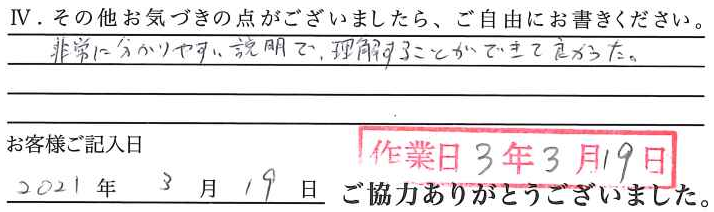 Ⅳ．その他お気づきの点がございましたら、ご自由にお書きください。
非常に分かりやすい説明で、理解することができて良かった。
お客様ご記入日
作業日 3年3月19日
2021年 3月19日 ご協力ありがとうございました。